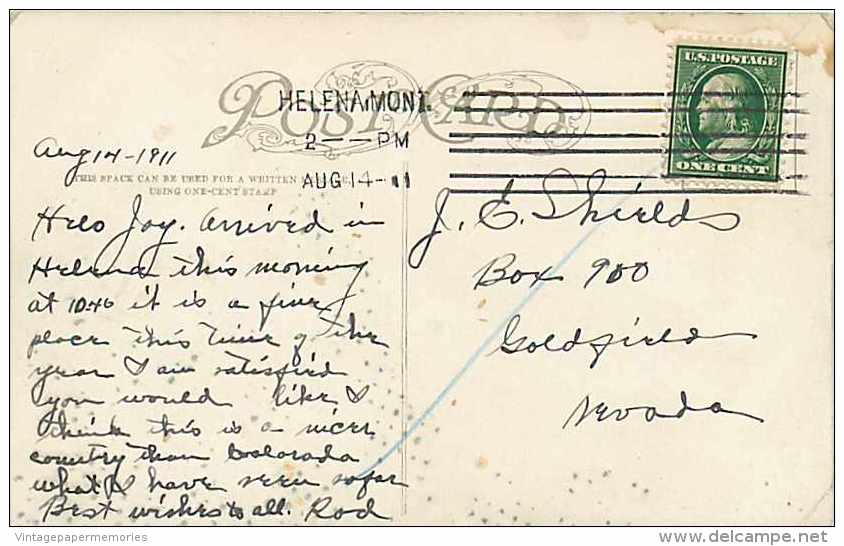 U.S. POSTAGE
ONE CENT
POST CARD
HELENA, MONT.
2 -- PM
AUG 14 - 11
Aug 14 - 1911
THIS SPACE CAN BE USED FOR A WRITTEN
USING ONE-CENT STAMP
Helo Jay. Arrived in
Helena this morning
at 10:40 it is a fine
place this time of the
year I am satisfied
you would like I
think this is a nicer
country than Colorado
what I have seen so far
Best wishes to all. Rod
J. E. Shields
Box 900
Goldfield
Nevada
Vintagepapermemories
delcampe.net